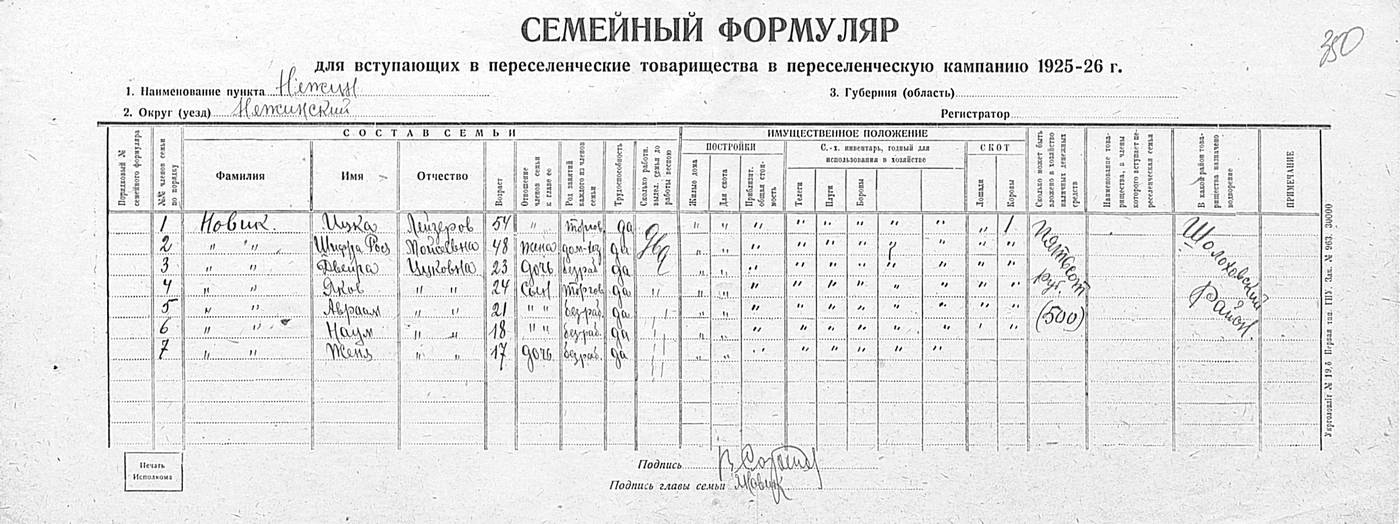 СЕМЕЙНЫЙ ФОРМУЛЯР
350
для вступающих в переселенческие товарищества в переселенческую кампанию 1925-26 г.
1. Наименование пункта Нежин
3. Губерния (область)
2. Округ (уезд) Нежинский
Регистратор
СОСТАВ СЕМЬИ
ИМУЩЕСТВЕННОЕ ПОЛОЖЕНИЕ
Порядковый № семейного формуляра
№№ членов семьи по порядку
Фамилия
Имя
Отчество
Возраст
Отношение членов семьи к главе ее
Род занятий каждого из членов семьи
Трудоспособность
Сколько работн. выдел. семья до работы весною
ПОСТРОЙКИ
Жилые дома
Для скота
Приблизит. общая стоимость
С.-х. инвентарь, годный для использования в хозяйстве
Телеги
Плуги
Бороны
СКОТ
Лошади
Коровы
Сколько может быть вложено в хозяйство наличных денежных средств
Наименование товарищества, в члены которого вступает переселенческая семья
В какой район товарищества назначено водворение
ПРИМЕЧАНИЕ
1 Новик. Ицка Лейзеров 54 " торгов. да два " " " " " " " " " 1 Пятьсот руб. (500) Шолоховский район.
2 " " Шифра Мойсеевна 48 жена да " " " " " " " " "
3 " " Двейра Ицковна 23 дочь безраб. да " " " " " " " " " "
4 " " Яков " " 24 сын торгов. да " " " " " " " " " " "
5 " " Авраам " " 21 " " безраб. да " " " " " " " " " " "
6 " " Наум " " 18 " " безраб. да " " " " " " " " " " "
7 " " Женя " " 17 дочь безраб. да " " " " " " " " " " "
Печать Исполкома
Подпись
Подпись главы семьи Новик
Укрголовлiт № 19.б Первая тип. ГПУ. Зак. № 963. 30000